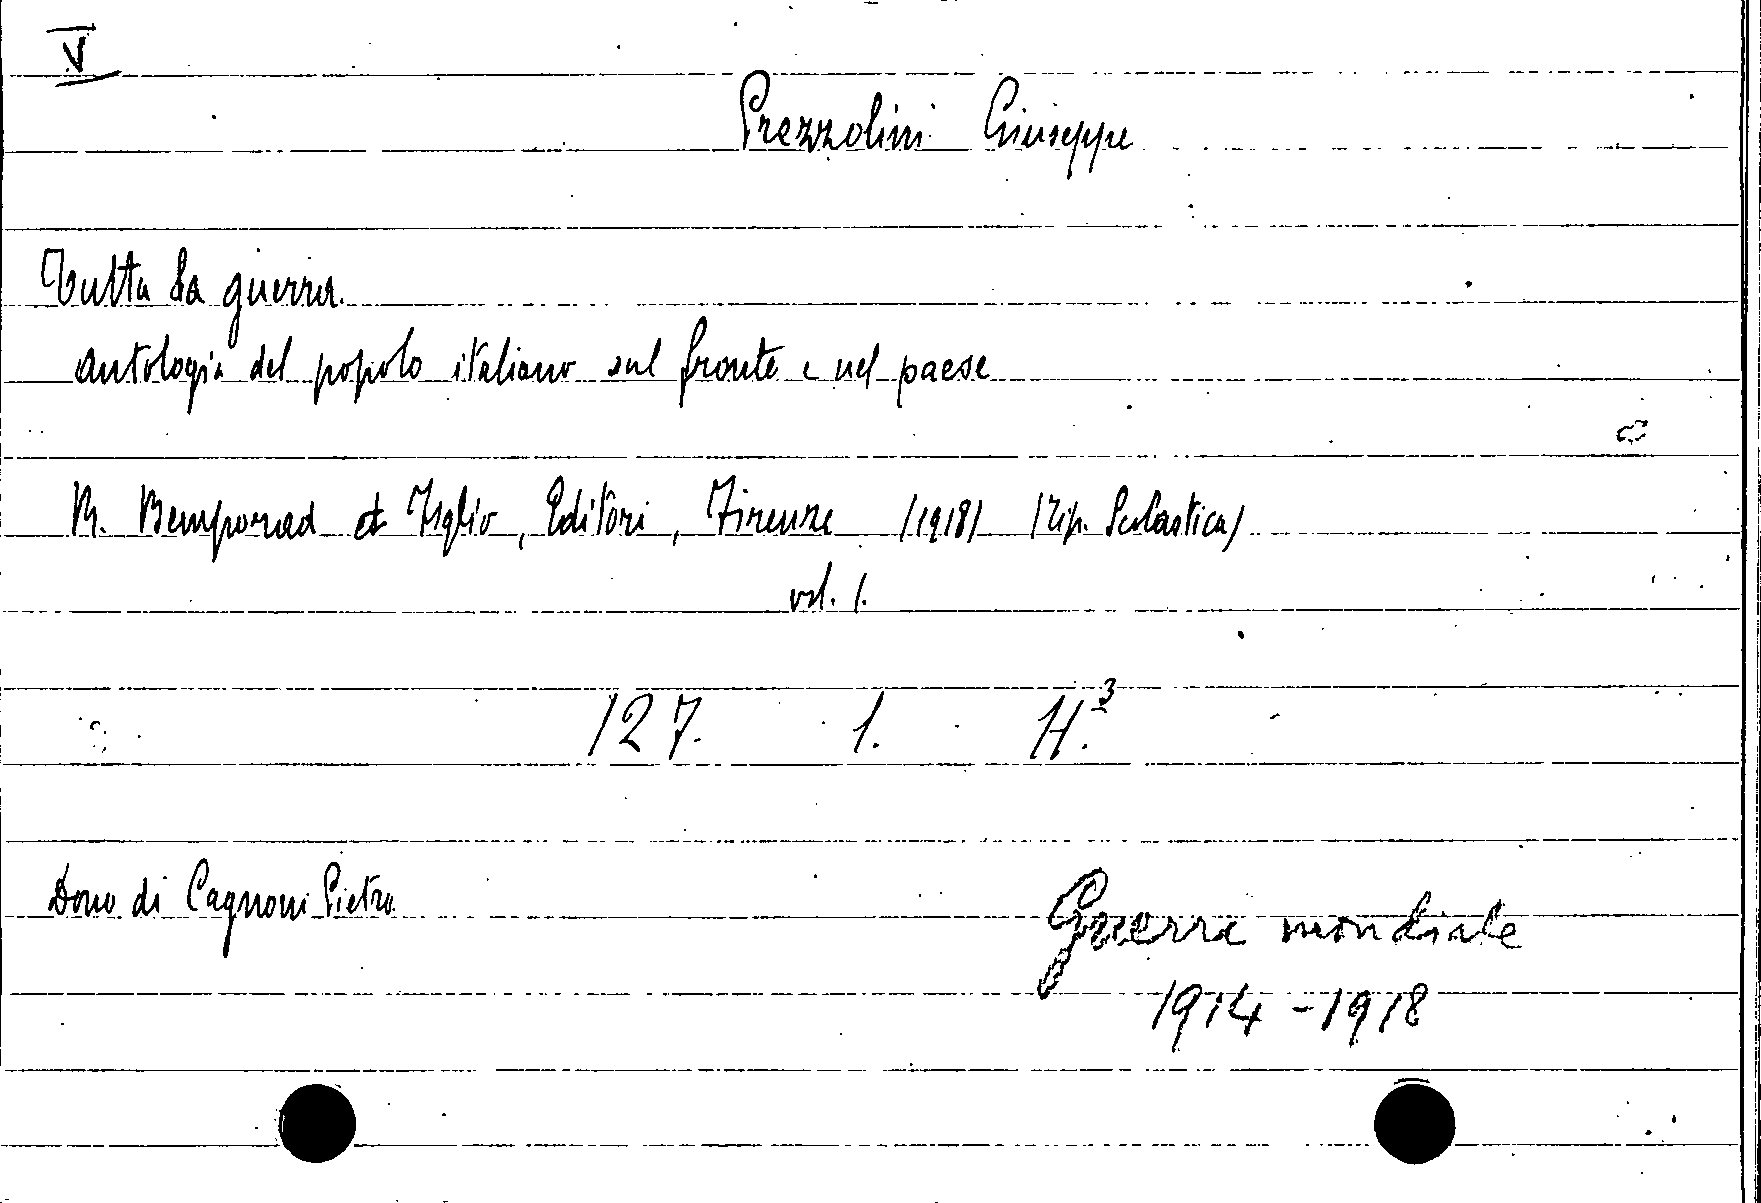 V
Prezzolini Giuseppe
Tutta la guerra.
Antologia del popolo italiano sul fronte e nel paese
R. Bemporad et Figlio, Editori, Firenze /1918/ /Tip. Scolastica/
vol. 1.
127. 1. H.³
Dono di Cagnoni Pietro
Guerra mondiale
1914-1918